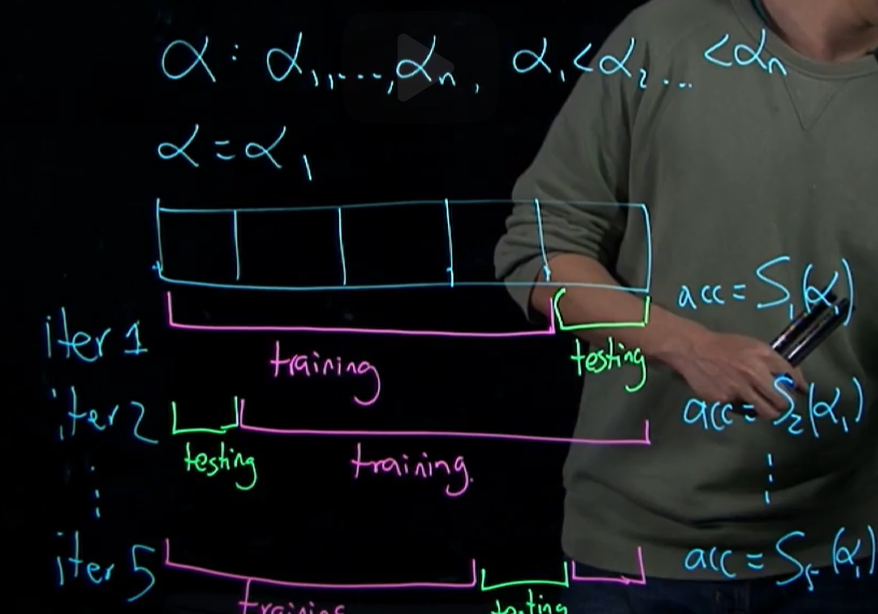 α : α₁,...,αₙ, α₁<α₂...<αₙ
α=α₁
iter 1 training testing acc = S₁(α₁)
iter 2 testing training. acc = S₂(α₁)
⋮ ⋮
iter 5 training testing acc = S₅(α₁)